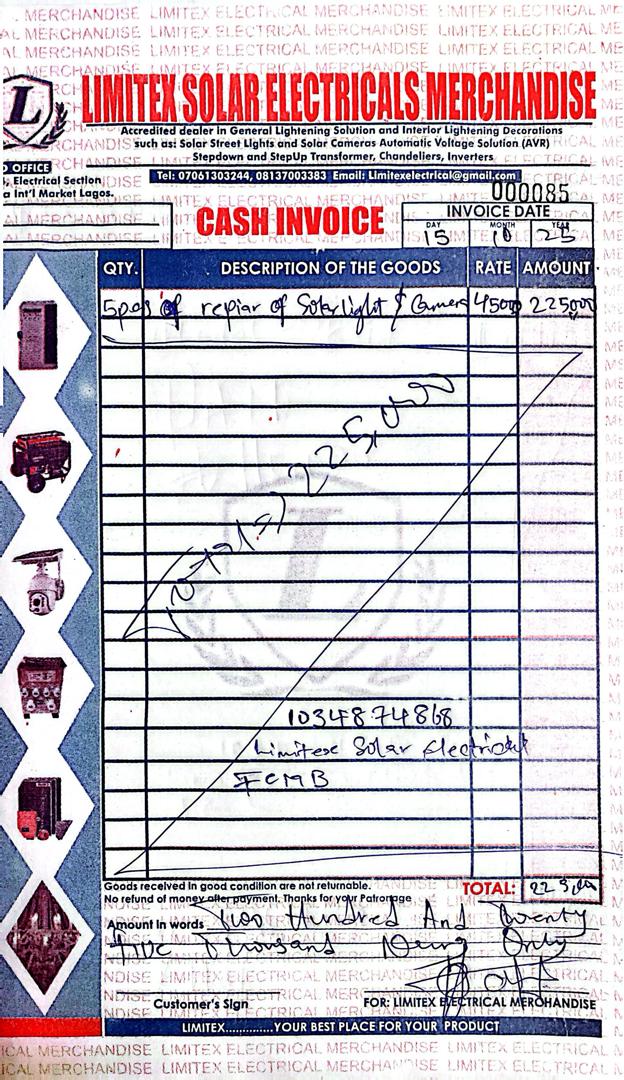 LIMITEX SOLAR ELECTRICALS MERCHANDISE
Accredited dealer in General Lightening Solution and Interior Lightening Decorations
such as: Solar Street Lights and Solar Cameras Automatic Voltage Solution (AVR)
Stepdown and StepUp Transformer, Chandeliers, Inverters
OFFICE
Electrical Section
a Int'l Market Lagos.
Tel: 07061303244, 08137003383 Email: Limitexelectrical@gmail.com
000085
CASH INVOICE
INVOICE DATE
DAY MONTH YEAR
15 10 25
QTY. DESCRIPTION OF THE GOODS RATE AMOUNT
5pcs of repiar of Solar light & Camera 45000 225000
Total => 225,000
1034874868
Limitex Solar Electrical
FCMB
Goods received in good condition are not returnable.
No refund of money after payment. Thanks for your Patronage
TOTAL: 225,000
Amount in words Two Hundred And Twenty
Five Thousand Naira Only
Customer's Sign
FOR: LIMITEX ELECTRICAL MERCHANDISE
LIMITEX.............YOUR BEST PLACE FOR YOUR PRODUCT